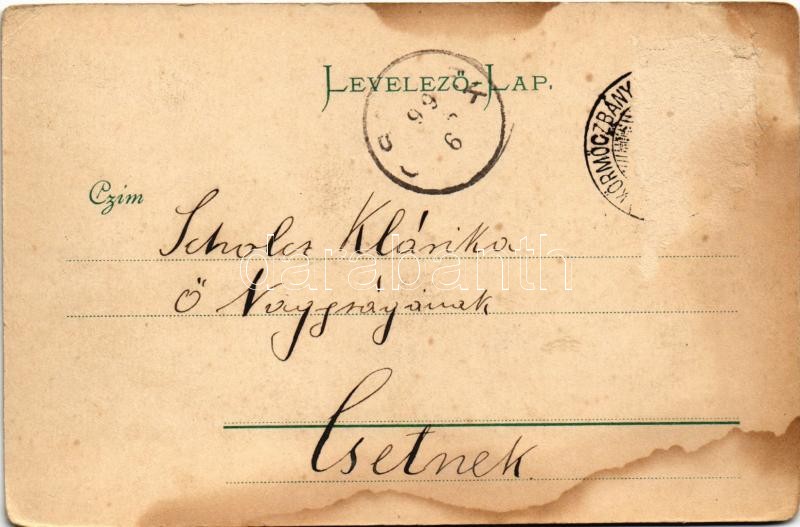 LEVELEZŐ-LAP.
99
6
KÖRMÖCZBÁNY
Czím
Scholcz Klárika
Ő Nagyságának
darabanth
Csetnek